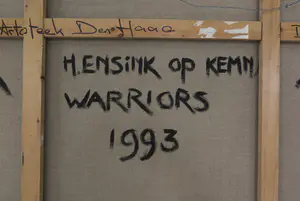 Artoteek Den Haag
H. ENSINK OP KEMN
WARRIORS
1993